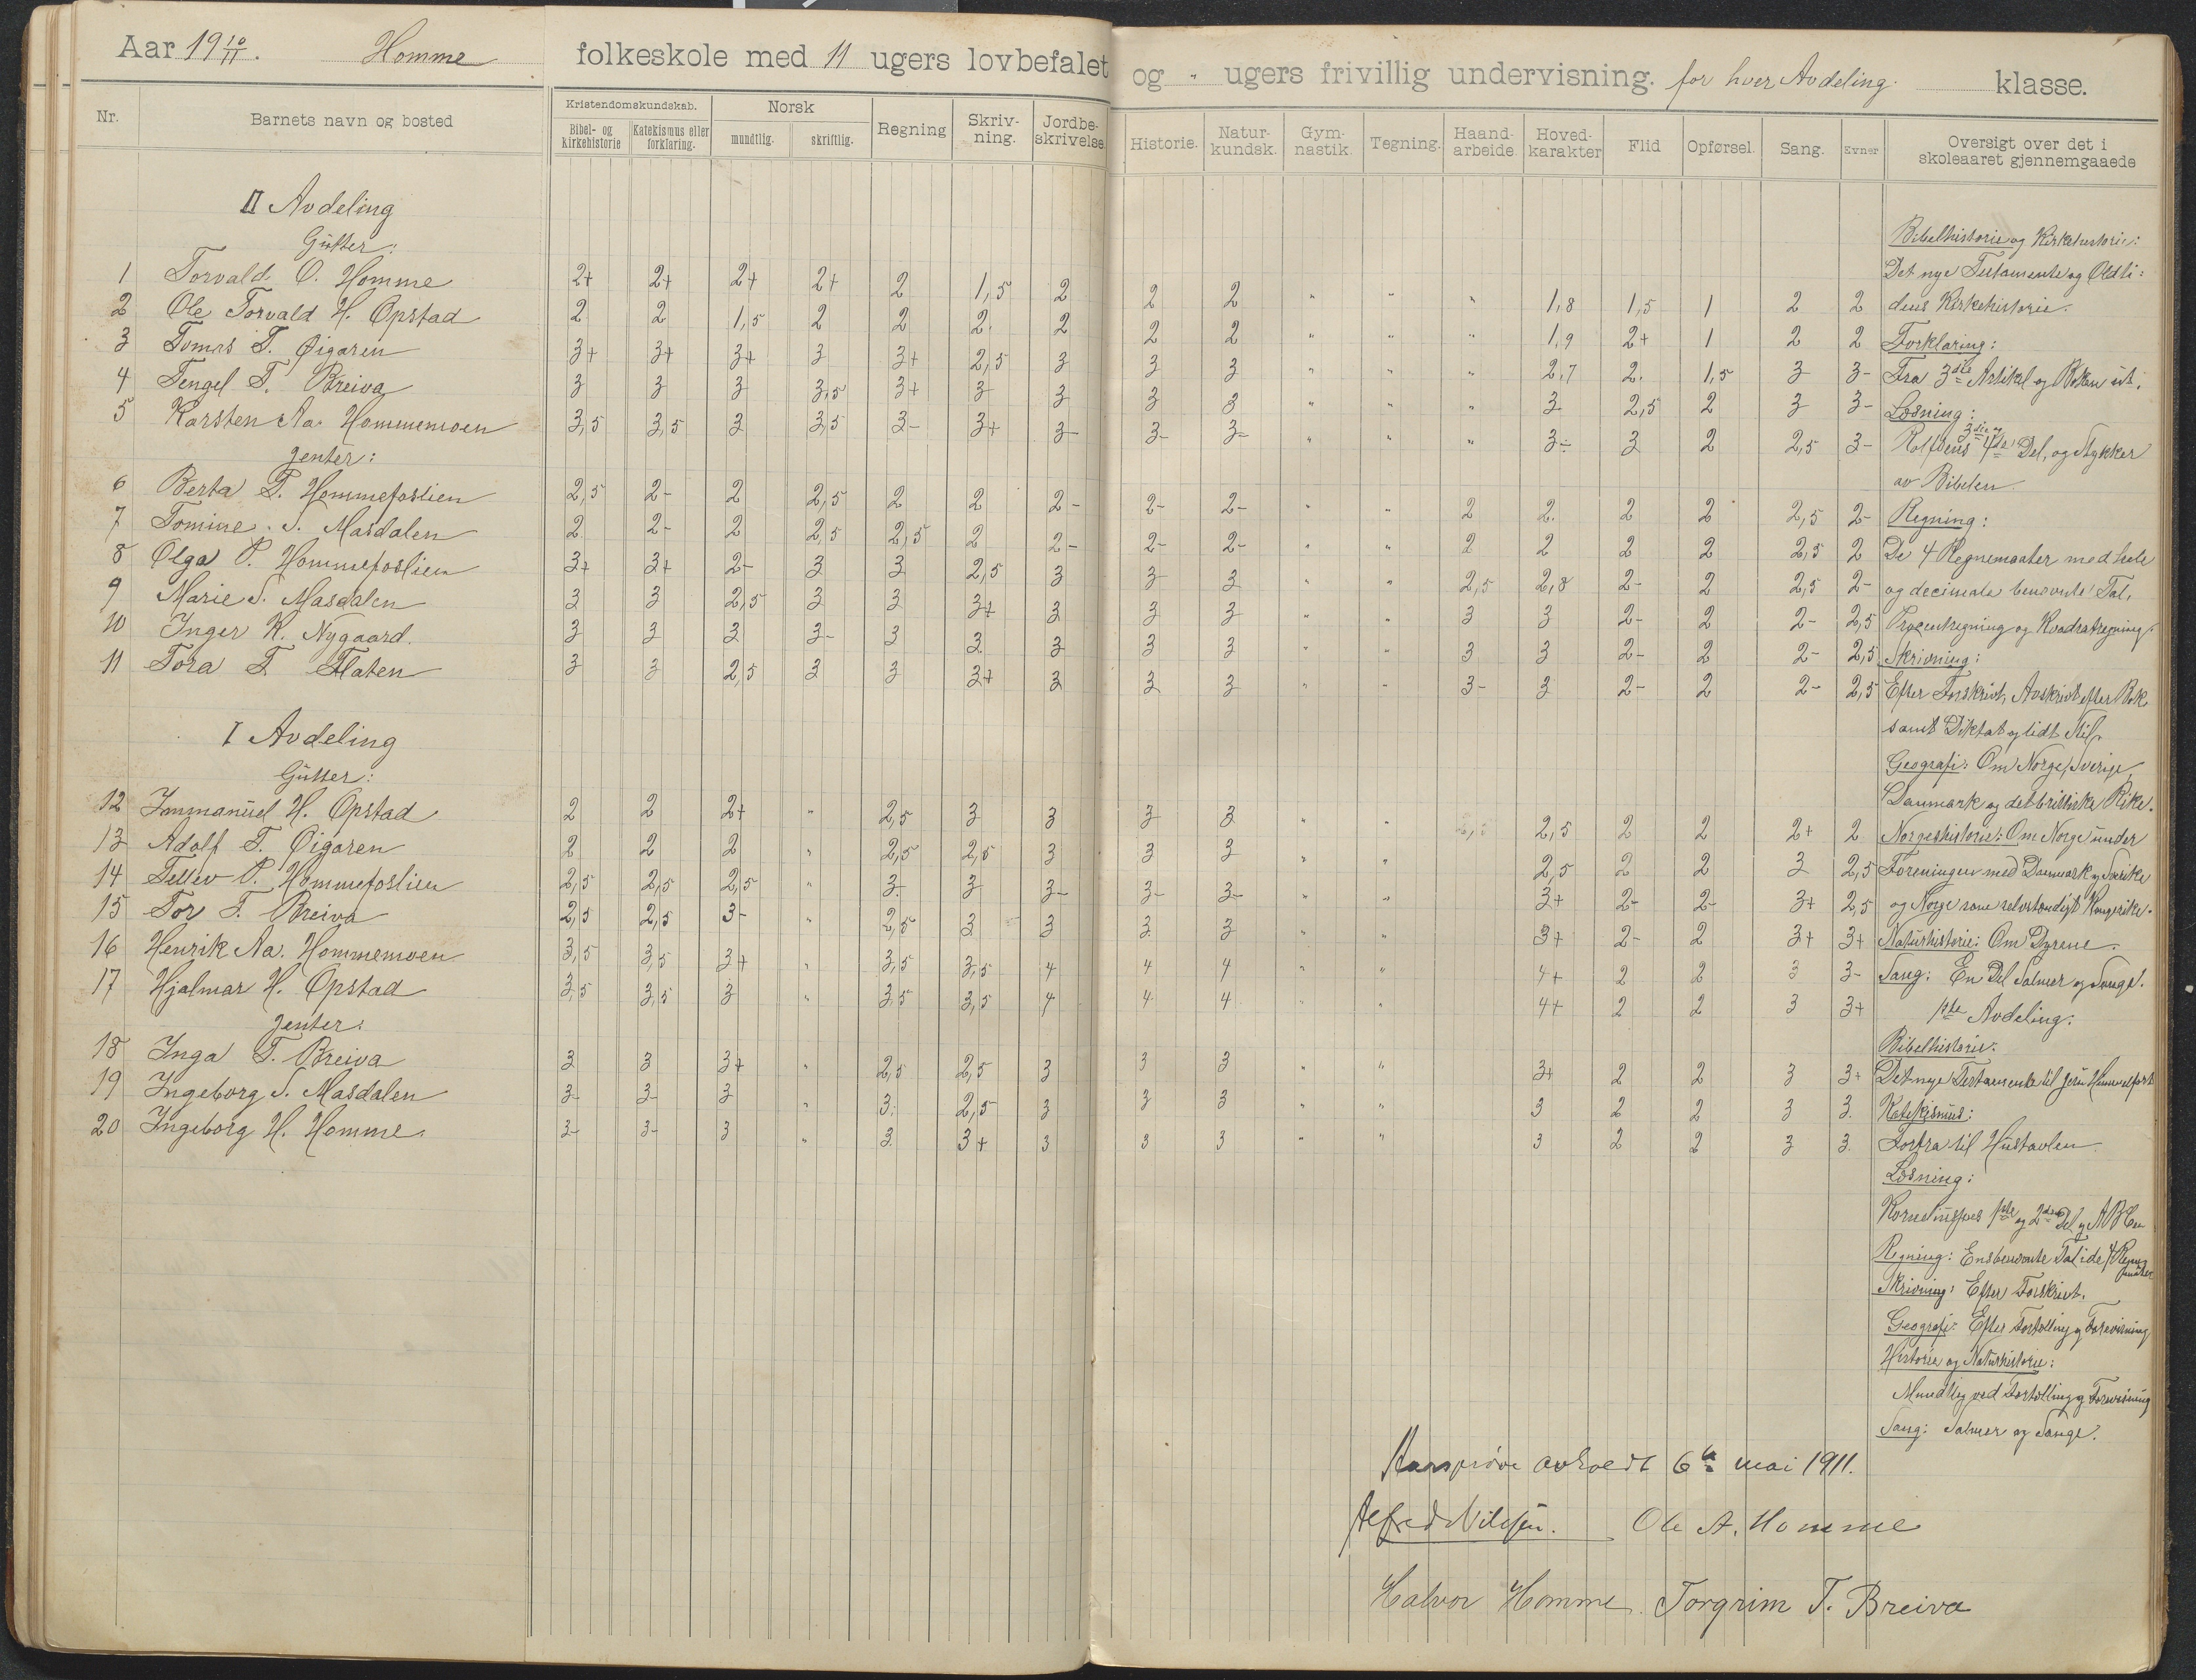 Aar 19 10/11. Homme folkeskole med 11 ugers lovbefalet og " ugers frivillig undervisning. for hver Avdeling. klasse.
Nr. Barnets navn og bosted
Kristendomskundskab. Bibel- og kirkehistorie Katekismus eller forklaring. Norsk mundtlig. skriftlig. Regning Skrivning. Jordbeskrivelse.
Historie. Naturkundsk. Gymnastik. Tegning. Haandarbeide. Hovedkarakter Flid Opførsel. Sang. Evner Oversigt over det i skoleaaret gjennemgaaede
II Avdeling
Gutter:
1 Torvald O. Homme 2+ 2+ 2+ 2+ 2 1,5 2 2 2 " " " 1,8 1,5 1 2 2
2 Ole Torvald H. Opstad 2 2 1,5 2 2 2 2 2 2 " " " 1,9 2+ 1 2 2
3 Tomas T. Øigaren 3+ 3+ 3+ 3 3+ 2,5 3 3 3 " " " 2,7 2. 1,5 3 3-
4 Tengel T. Breiva 3 3 3 3,5 3+ 3 3 3 3 " " " 3 2,5 2 3 3-
5 Karsten Aa. Hommemoen 3,5 3,5 3 3,5 3- 3+ 3- 3- 3- " " " 3- 3 2 2,5 3-
Jenter:
6 Berta T. Hommefoslien 2,5 2- 2 2,5 2 2 2- 2- 2- " " 2 2. 2 2 2,5 2-
7 Tomine S. Masdalen 2 2- 2 2,5 2,5 2 2- 2- 2- " " 2 2 2 2 2,5 2
8 Olga P. Hommefoslien 3+ 3+ 2- 3 3 2,5 3 3 3 " " 2,5 2,8 2- 2 2,5 2-
9 Marie S. Masdalen 3 3 2,5 3 3 3+ 3 3 3 " " 3 3 2- 2 2- 2,5
10 Inger K. Nygaard. 3 3 3 3- 3 3 3 3 3 " " 3 3 2- 2 2- 2,5
11 Tora T. Flaten 3 3 2,5 3 3 3+ 3 3 3 " " 3- 3 2- 2 2- 2,5
I Avdeling
Gutter:
12 Immanuel H. Opstad 2 2 2+ " 2,5 3 3 3 3 " " 2,5 2 2 2+ 2
13 Adolf T. Øigaren 2 2 2 " 2,5 2,5 3 3 3 " " 2,5 2 2 3 2,5
14 Tellev P. Hommefoslien 2,5 2,5 2,5 " 3. 3 3- 3- 3- " " 3+ 2- 2- 3+ 2,5
15 Tor T. Breiva 2,5 2,5 3- " 2,5 3 3 3 3 " " 3+ 2- 2 3+ 3+
16 Henrik Aa. Hommemoen 3,5 3,5 3+ " 3,5 3,5 4 4 4 " " 4+ 2 2 3 3-
17 Hjalmar H. Opstad 3,5 3,5 3 " 3,5 3,5 4 4 4 " " 4+ 2 2 3 3+
Jenter:
18 Inga T. Breiva 3 3 3+ " 2,5 2,5 3 3 3 " " 3+ 2 2 3 3+
19 Ingeborg S. Masdalen 3- 3- 3 " 3. 2,5 3 3 3 " " 3 2 2 3 3.
20 Ingeborg H. Homme. 3- 3- 3 " 3. 3+ 3 3 3 " " 3 2 2 3 3.
Bibelhistorie og Kirkehistorie:
Det nye Testamente og Oldti:
dens Kirkehistorie.
Forklaring:
Fra 3die Artikel og Boken ut.
Læsning:
Rolfsens 3die og 4de Del, og Stykker
av Bibelen.
Regning:
De 4 Regnemaater med hele
og decimale benevnte Tal,
Procentregning og Kvadratregning.
Skrivning:
Efter Forskrivt, Avskrivt efter Bok
samt Diktat og lidt Stil.
Geografi: Om Norge, Sverige,
Danmark og det britiske Rike.
Norgeshistorie: Om Norge under
Foreningen med Danmark og Sverike
og Norge som selvstændigt Kongerike.
Naturhistorie: Om Dyrene.
Sang: En Del Salmer og Sange.
1ste Avdeling.
Bibelhistorie:
Det nye Testamente til Jesu Himmelfart
Katekismus:
Fortra til Hustavlen.
Læsning:
1ste og 2den Del og ABCen
Regning: Ensbenevnte Tal i de 4 Regnemåter
Skrivning: Efter Forskrivt.
Geografi: Efter Fortelling og Forevisning
Historie og Naturhistorie:
Mundtlig ved Fortelling og Forevisning
Sang: Salmer og Sange.
Aarsprøve avholdt 6te mai 1911.
Alfred Nilsen. Ole A. Homme
Halvor Homme. Torgrim T. Breiva